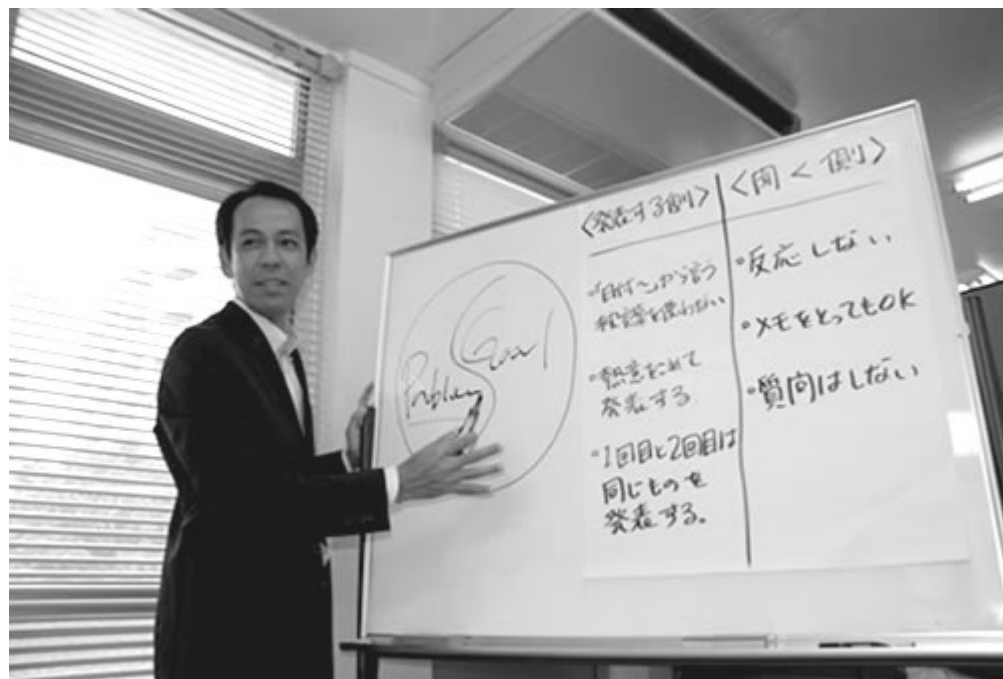 Problem
Goal
〈発表する側〉
・「自分〜」から言う
・熱意をこめて
発表する.
・1回目と2回目は
同じものを
発表する。
〈聞く側〉
・反応しない
・メモをとってもOK
・質問はしない